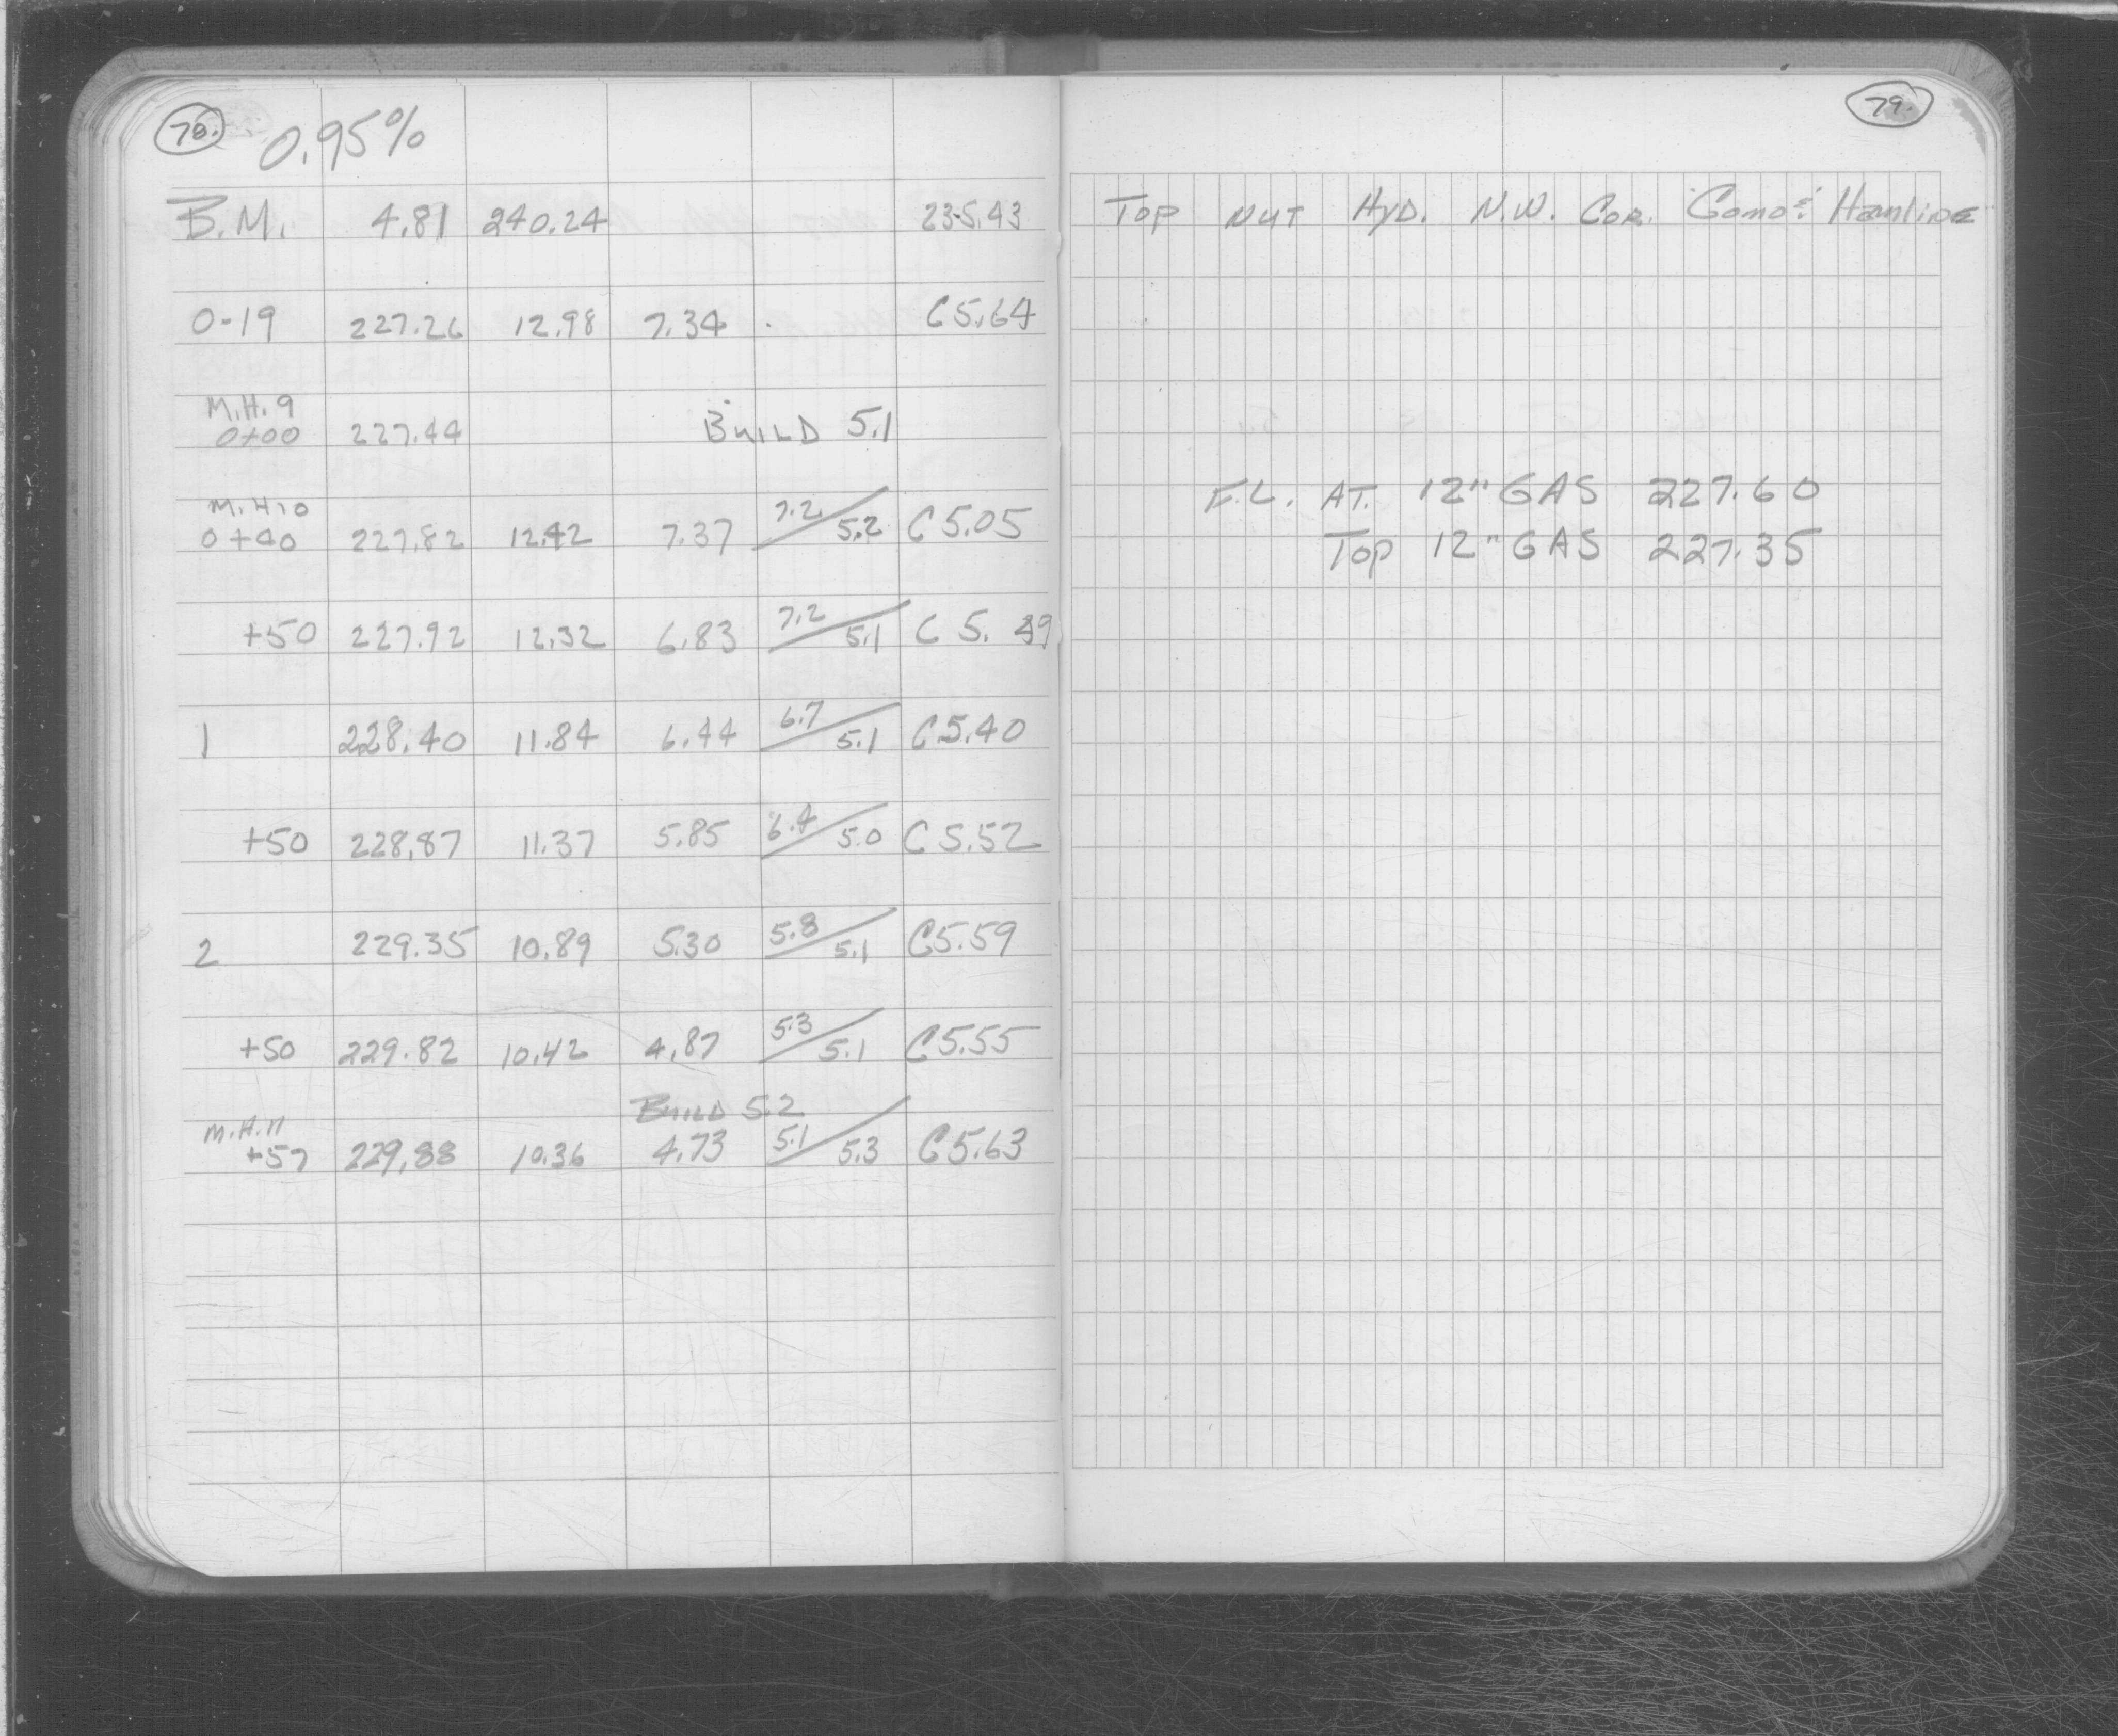 78.
0.95%
B.M. 4.81 240.24 235.43
0-19 227.26 12.98 7.34 C 5.64
M.H. 9
0+00 227.44 BUILD 5.1
M.H 10
0+40 227.82 12.42 7.37 7.2/5.2 C 5.05
+50 227.92 12.32 6.83 7.2/5.1 C 5.49
1 228.40 11.84 6.44 6.7/5.1 C 5.40
+50 228.87 11.37 5.85 6.4/5.0 C 5.52
2 229.35 10.89 5.30 5.8/5.1 C 5.59
+50 229.82 10.42 4.87 5.3/5.1 C 5.55
BUILD 5.2
M.H. 11
+57 229.88 10.36 4.73 5.1/5.3 C 5.63
79.
TOP NUT HYD. N.W. COR. Como & Hamline
F.L. AT. 12" GAS 227.60
TOP 12" GAS 227.35